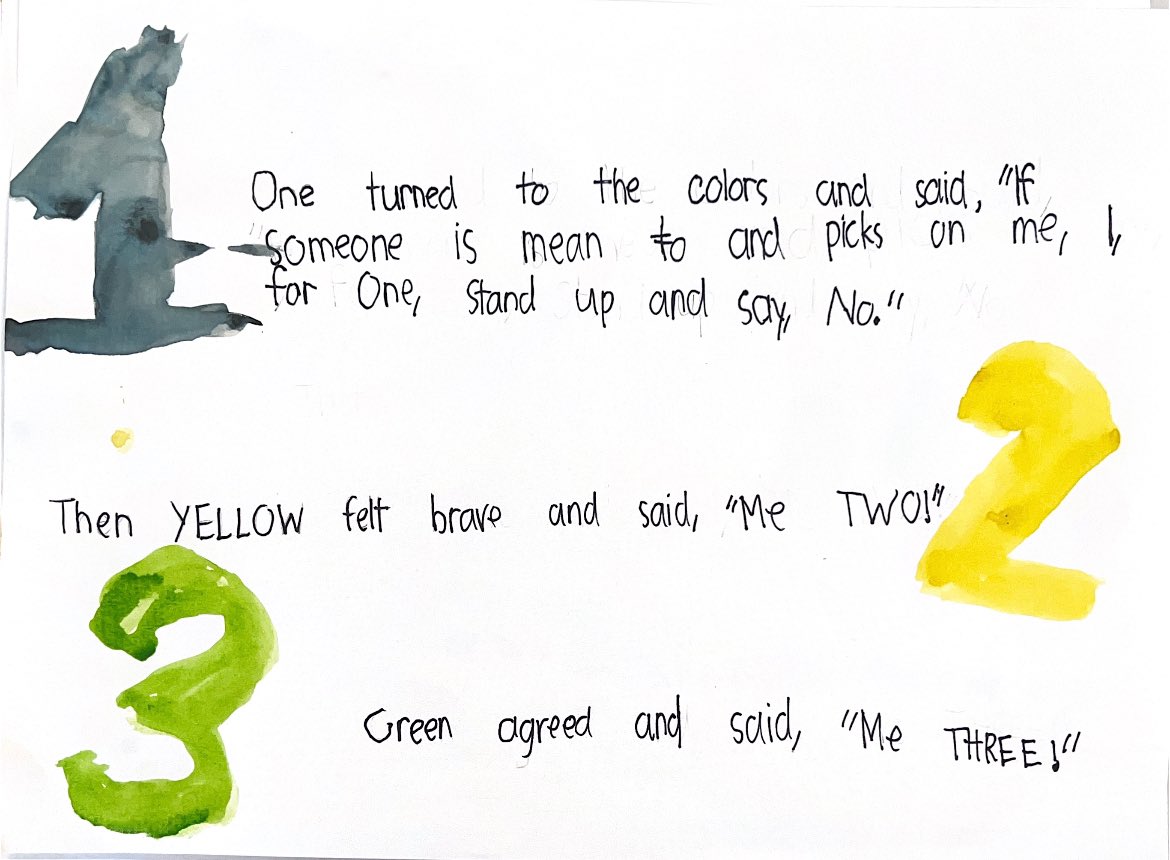 1
One turned to the colors and said, "If
someone is mean to and picks on me, I,
for One, stand up and say, No."
2
Then YELLOW felt brave and said, "Me TWO!"
3
Green agreed and said, "Me THREE!"